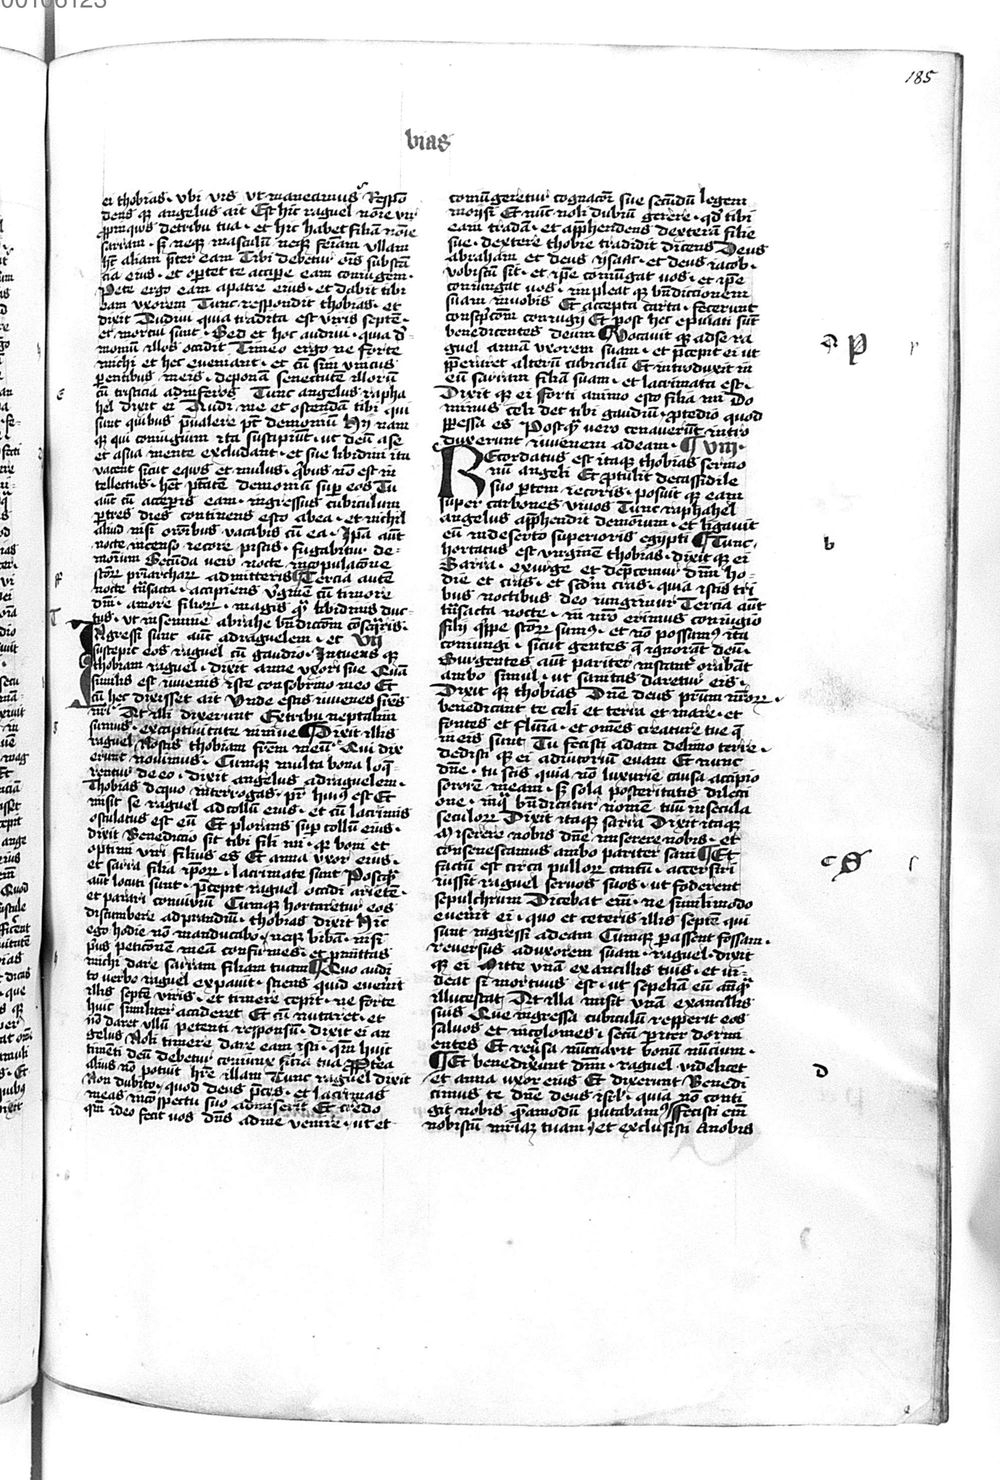 185
vias
ei thobias · vbi vis vt maneamus Respō
dens qȝ angelus ait Est hic raguel noīe vir
ppinqus de tribu tua · et hic habet filiā noīe
sarram · sȝ neqȝ masculū neqȝ femīam ullam
hȝ aliam p̄ter eam Tibi debetur ōis substā
cia eius · et oportet te accipe eam coniugem ·
Pete ergo eam a patre eius · et dabit tibi
eam vxorem Tunc respondit thobias · et
dixit Audiui quia tradita est viris septē ·
et mortui sunt · Sed et hoc audiui · quia de
monū illos occidit Timeo ergo ne forte
michi et hec eveniant · et cū sim vnicus
parentibus meis · deponā senectutē illorū
cū tristicia ad inferos Tunc angelus rapha
hel dixit ei Audi me et ostendam tibi qui
sunt quibus p̄ualere pt demoniū Hij nam
qȝ qui coniugium ita suscipiūt · ut deū a se
et a sua mente excludant · et sue libidini ita
vacent sicut equs et mulus · qbus nō est in
tellectus · hȝt ptātē demoniū sup eos Tu
aut cū acceperis eam · ingressus cubiculum
p tres dies continens esto ab ea · et nichil
aliud nisi orōnibus vacabis cū ea · Ipā aūt
nocte incenso iecore piscis · fugabitur de=
monium Secūda vero nocte in copulacōne
sctōr priarchar admitteris Tercia autē
nocte trāsacta · accipiens vgīnē cū timore
dnī · amore filiorū · magis qȝ libidinis duc
tus · ut in semine abrahe bn̄dictōm cōseqris ·
Ingressi sunt aut ad raguelem · et VII
suscepit eos raguel cū gaudio · Intuens qȝ
thobiam raguel · dixit anne vxori sue Quā
similis est iuuenis iste consobrino meo Et
cū hec dixisset ait Vnde estis iuuenes frēs
nri · At illi dixerunt Ex tribu neptalim
sumus · ex captiuitate niniue Dixit illis
raguel Nostis thobiam frēm meū Qui dix
erunt nouimus · Cumqȝ multa bona loq=
rentur de eo · dixit angelus ad raguelem ·
Thobias de quo interrogas · pr̄ huiqs est Et
misit se raguel ad collū eius · et cū lacrimis
osculatus est eū Et plorans sup collū eius ·
dixit Benedictio sit tibi fili mi · qȝ boni et
optimi viri filius es Et anna vxor eius ·
et sarra filia ipor · lacrimate sunt Postqȝ
aūt locuti sunt · p̄cepit raguel occidi arietē ·
et parari conuiuiū Cumqȝ hortaretur eos
discumbere ad prandiū · thobias dixit Hic
ego hodie nō manducabo · neqȝ bibā · nisi
p̄us peticionē meā confirmes · et p̄mittas
michi dare sarram filiam tuam Quo audi
to verbo raguel expauit · sciens quid euenit
illis septē viris · et timere cepit · ne forte
huic similiter accideret Et cū nutaret · et
nō daret vllū petenti responsū · dixit ei an
gelus Noli timere dare eam isti · qm̄ huic
timenti deū debetur coniunx filia tua Ptea
alius nō potuit hre illam Tunc raguel dixit
Non dubito · quod deus p̄ces · et lacrimas
meas in cōspectu suo admiserit Et credo
qm̄ ideo fecit uos dn̄s ad me venire · ut et
coniūgeretur cognacōi sue secūdū legem
moysi Et nūc noli dubiū gerere · qd tibi
eam tradā · et app̄hendens dexterā filie
sue · dextere thobie tradidit dicens Deus
abraham et deus ysaac · et deus iacob ·
vobiscū sit · et ipe coniungat uos · et ipe
coniungat uos · impleat qȝ bn̄dictionem
suam in vobis Et accepta carta · fecerunt
consp̄cōem coniugij Et post hec epulati sūt
benedicentes deum Vocauit qȝ ad se ra
guel annā vxorem suam · et p̄cepit ei ut
pp̄araret alterū cubiculū Et introduxit in
eū sarram filiā suam · et lacrimata est ·
Dixit qȝ ei forti animo esto filia mi Do
minus celi det tibi gaudiū · p tedio quod
ppessa es Postqȝ vero cenauerūt intro
duxerunt iuuenem ad eam · VIII ·
Recordatus est itaqȝ thobias sermo
nū angeli Et ptulit de cassidile
suo ptem iecoris · posuit qȝ eam
super carbones viuos Tunc raphahel
angelus app̄hendit demoniū · et ligauit
eū in deserto superioris egypti Tunc
hortatus est virginē thobias · dixit qȝ ei
Sarra · exurge et dep̄cemur dm̄ ho=
die et cras · et scdm cras · quia istis tri
bus noctibus deo iungimur Tercia aūt
trāsacta nocte · in nrō erimus coniugio
Filij qppe sctōr sumus · et nō possumus ita
coniungi · sicut gentes q̄ ignorāt deū ·
Surgentes aūt pariter instantr orabāt
ambo simul · ut sanitas daretur eis ·
Dixit qȝ thobias Dn̄e deus prūm nr̄or ·
benedicant te celi et terra et mare · et
fontes et flūia · et om̄es creature tue q̄
in eis sunt Tu fecisti adam de limo terre ·
dedisti qȝ ei adiutoriū euam Et nunc
dn̄e · tu scis quia nō luxurie causa accipio
sororē meam · sȝ sola posteritatis dilecti
one · in q̄ bn̄dicatur nomē tuū in secula
seculor Dixit itaqȝ sarra Dixit itaqȝ
Miserere nobis dn̄e miserere nobis · et
consenescamus ambo pariter sani Et
factū est circa pullor cantū · accersiri
iussit raguel seruos suos · ut foderent
sepulchrum Dicebat em̄ · ne simili modo
euenit ei · quo et ceteris illis septē qui
sunt ingressi ad eam Cumqȝ parassent fossam ·
reuersus ad vxorem suam · raguel · dixit
qȝ ei Mitte vnā ex ancillis tuis · et ui=
deat si mortuus est · ut sepelia eū anqȝ
illucescat At illa misit vnā ex ancillis
suis Que ingressa cubiculū repperit eos
saluos et incolomes · secū pariter dormi
entes Et reūsa nūcciauit bonū nūcium ·
Et benedixerunt dm̄ · raguel videlicet
et anna vxor eius Et dixerunt Benedi
cimus te dn̄e deus isrl · quia nō conti
git nobis qmadmodū putabamus Fecisti em̄
nobiscū mīam tuam · et exclusisti a nobis
a p
b
c
d